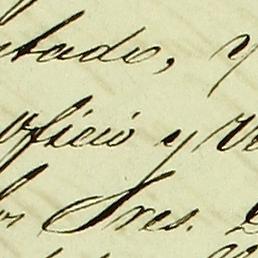 tado, y
oficio y Ve
los Sres. D